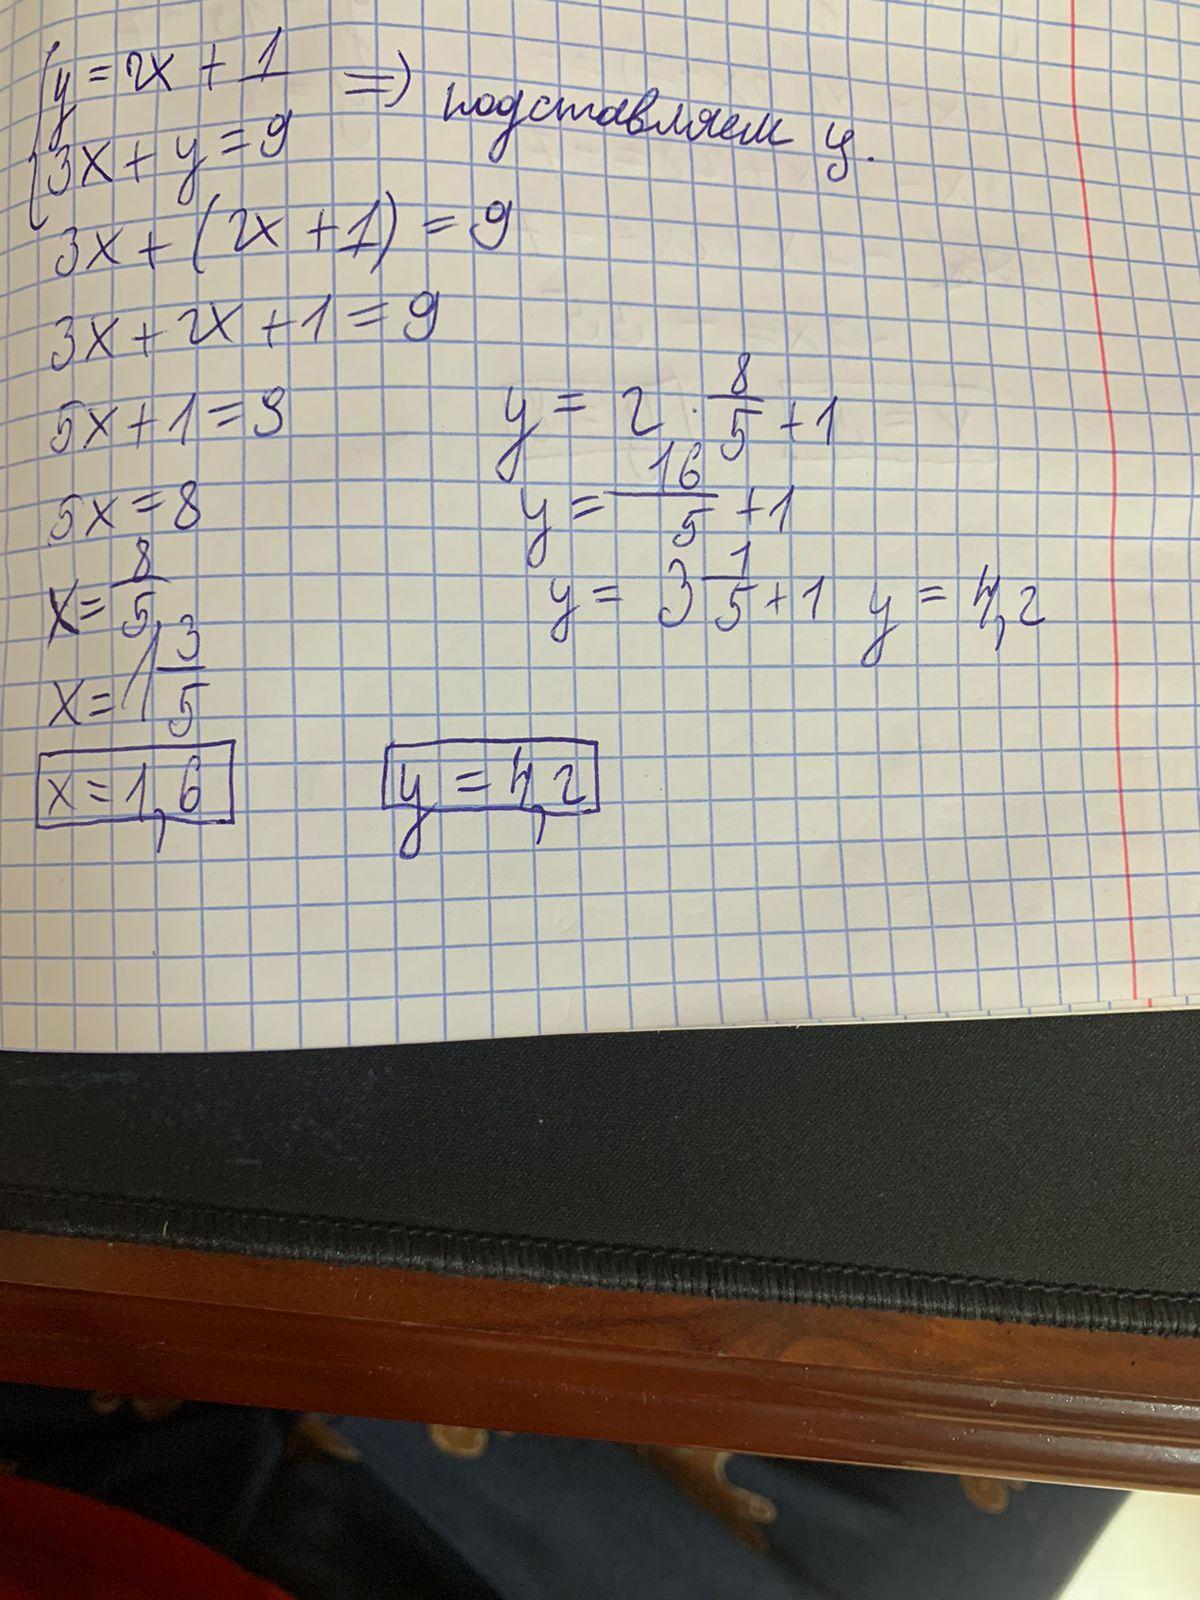 {y = 2x + 1
3x + y = 9 => подставляем y.
3x + (2x + 1) = 9
3x + 2x + 1 = 9
5x + 1 = 9
5x = 8
x = 8/5
x = 1 3/5
x = 1,6
y = 2 · 8/5 + 1
y = 16/5 + 1
y = 3 1/5 + 1 y = 4,2
y = 4,2